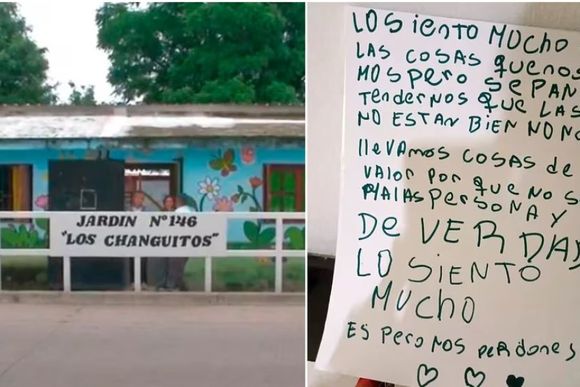 JARDIN Nº 146
"LOS CHANGUITOS"
LO SIENTO MUCHO
LAS COSAS QUENOS
MOS PERO SEPAN
TENDERNOS QUE LAS
NO ESTAN BIEN NO NO
llEVAMOS COSAS DE
VALOR POR QUE NO S
MALAS PERSONA Y
DE VERDAD
LO SIENTO
MUCHO
ES PERO NOS PERDONES